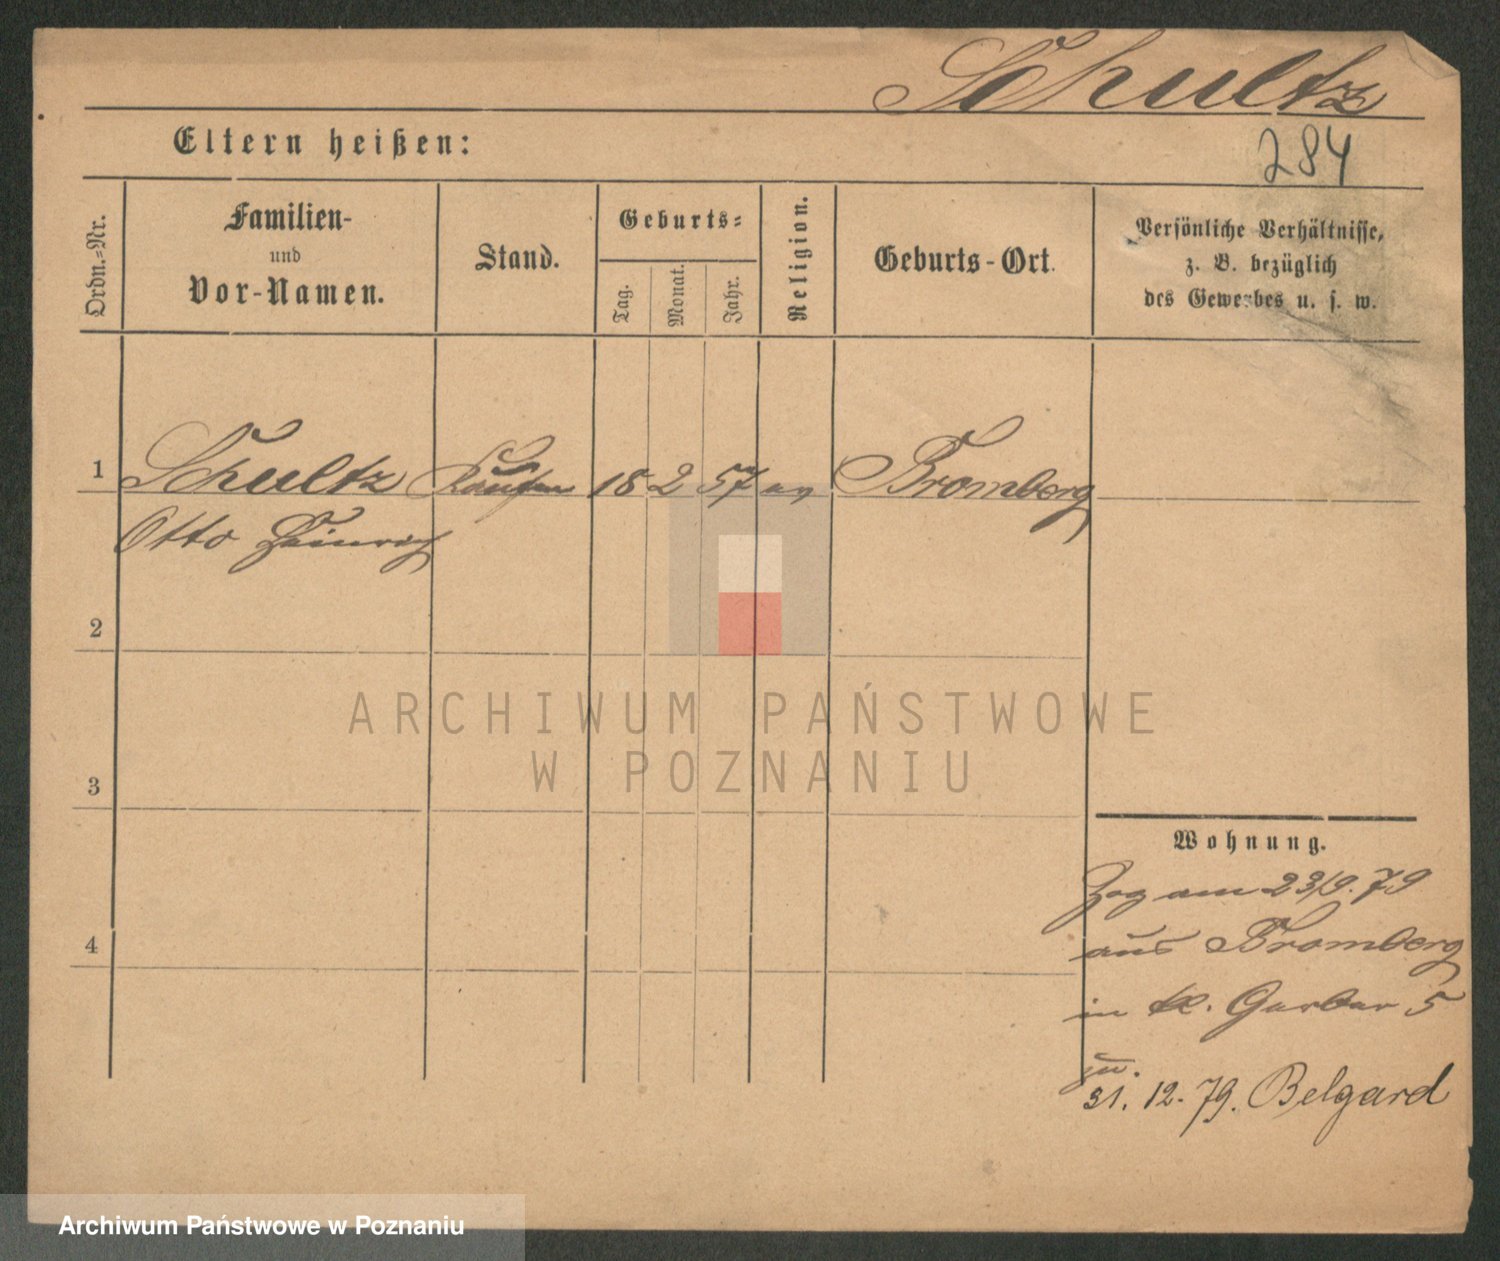 Schultz
Eltern heißen:
284
Ordn.-Nr.
Familien-
und
Vor-Namen.
Stand.
Geburts-
Tag.
Monat.
Jahr.
Religion.
Geburts-Ort.
Persönliche Verhältnisse,
z. B. bezüglich
des Gewerbes u. s. w.
1 Schultz Kaufm 18 2 57 ev Bromberg
Otto Heinrich
2
3
4
Wohnung.
Zog am 23/9. 79
aus Bromberg
in kl. Gerber 5
31. 12. 79. Belgard
ARCHIWUM PAŃSTWOWE
W POZNANIU
Archiwum Państwowe w Poznaniu